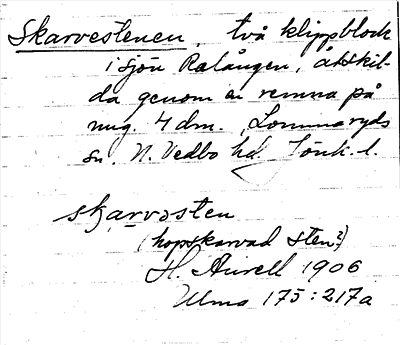 Skarvestenen, två klippblock
i sjön Ralången, åtskil-
da genom en remna på
nug. 4 dm., Lommaryds
sn. N. Vedbo hd. Jönk. l.
skarvəsten
(hopskarvad sten?)
H. Aurell 1906
Ulma 175:217a